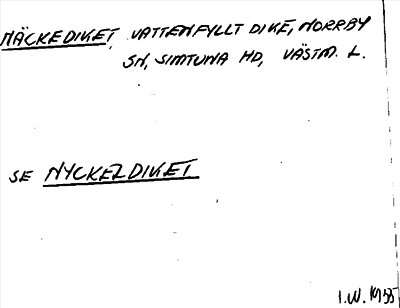 NÄCKEDIKET, VATTENFYLLT DIKE, NORRBY
SN, SIMTUNA HD, VÄSTM. L.
SE NYCKELDIKET
I.W. 1955